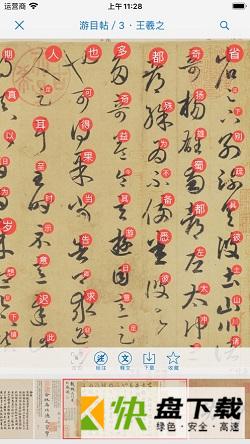 运营商
上午11:28
游目帖 / 3 · 王羲之
省足下别疏具彼土山川诸
奇扬雄蜀都左太冲三
都殊为不备悉彼故
多奇益令其游目意足
也可得果当告卿求
人足耳至时示意迟此
期真以日为岁想
标注
释文
下载
收藏
快盘下载
绿色·安全·高速